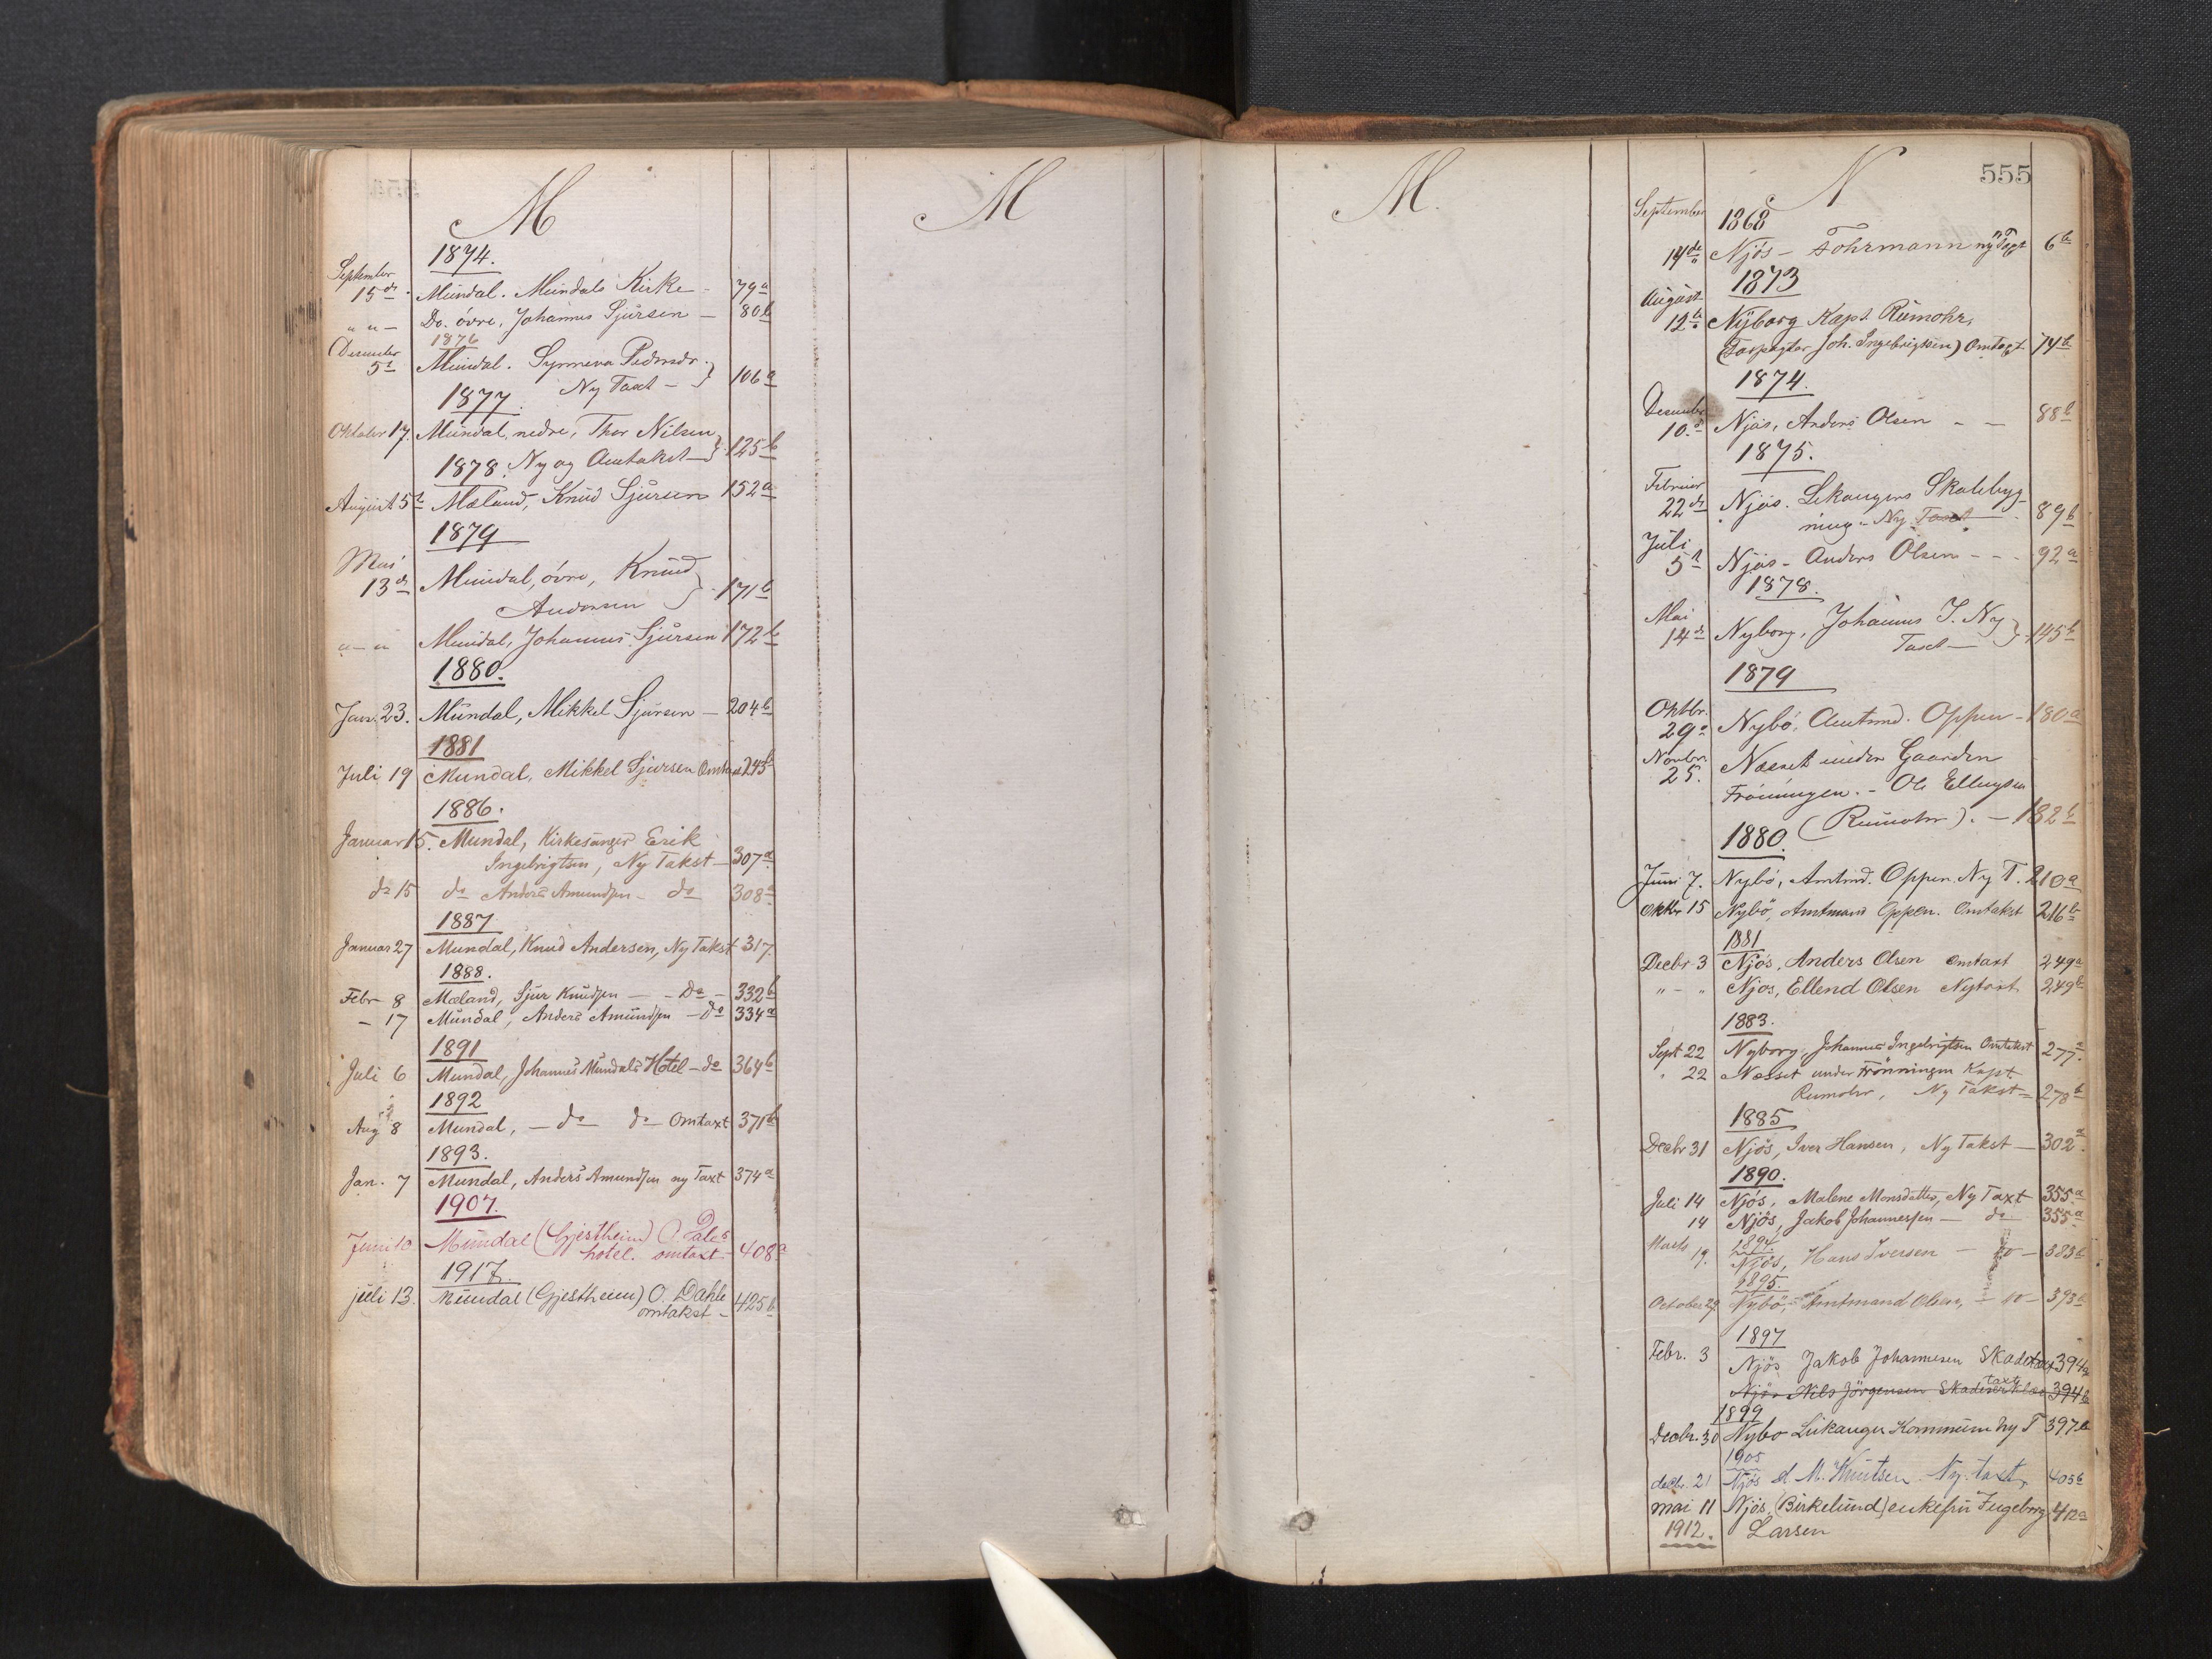 M
1874.
September
15de. Mundal. Mundals Kirke - 79a
" " - Do. övre, Johannes Sjursen - 80b
1876
December
5te Mundal. Synneva Pedersdr.
Ny Taxt - 106a
1877.
Oktober 17. Mundal, nedre, Thor Nilsen
Ny og Omtakst - 125b
1878.
August 5te Mæland, Knud Sjursen 152a
1879
Mai
13de Mundal, övre, Knud
Andersen 171b
" - " Mundal, Johannes Sjursen 172b
1880.
Janr. 23. Mundal, Mikkel Sjursen - 204b
1881
Juli 19 Mundal, Mikkel Sjursen 243b
1886.
Januar 15. Mundal, Kirkesanger Erik
Ingebrigtsen, Ny Takst - 307a
do 15 do Anders Amundsen - do 308a
1887.
Januar 27 Mundal, Knud Andersen, Ny Takst 317.
1888.
Febr 8 Mæland, Sjur Knudsen - - Do - 332b
- 17 Mundal, Anders Amundsen - Do 334a
1891
Juli 6 Mundal, Johannes Mundals Hotel - do 364b
1892
Aug 8 Mundal, - do do Omtaxt 371b
1893.
Jan. 7 Mundal, Anders Amundsen ny Taxt 374a
1907.
Juni 10 Mundal (Gjestheim) O. Dales
hotel. omtaxt. - 408a
1917.
juli 13. Mundal (Gjestheim) O. Dahle
omtakst - 425b
M
M.
N
555
September 1868
14de Njös - Fohrmann ny Taxt 6b
1873
August
12te Nyborg Kapt. Rumohr,
(Forpagter Joh. Ingebrigtsen) Omtaxt 74b
1874.
December
10. Njøs, Anders Olsen - - 88b
1875.
Februar
22de Njøs. Lekangers Skolebyg-
ning - Ny Taxt 89b
Juli
5te Njøs - Anders Olsen - - - 92a
1878.
Mai
14de Nyborg, Johannes I. Ny
Taxt - 145b
1879
Oktbr.
29. Nybö, Amtmd. Oppen - 180a
Novbr.
25. Næsset under Gaarden
Frönningen. - Ole Ellingsen
(Rumohr). - 182b
1880.
Juni 7. Nybö, Amtmd. Oppen. Ny T. 210a
Oktbr 15 Nybö, Amtmand Oppen. Omtakst 216b
1881
Decbr 3 Njös, Anders Olsen omtaxt 249a
" - " Njos, Ellend Olsen Nytaxt 249b
1883.
Sept 22 Nyborg, Johannes Ingebrigtsen Omtakst 277a.
" 22 Næsset under Frönningen Kapt
Rumohr, Ny Takst - 278b
1885
Decbr 31 Njös, Iver Hansen, Ny Takst - 302a.
1890.
Juli 14 Njös, Malene Monsdatter, Ny Taxt 355a
14 Njös, Jakob Johannessen - do 355a
1894.
Marts 19. Njös, Hans Iversen - do - 383b
1895.
October 29. Nybö, Amtmand Olsen, - do - 393b
1897
Febr. 3 Njös Jakob Johannesen Skadetaxt 394a
Njös Nils Jörgensen Skadetaxt 394b
1899
Decbr. 30 Nybo Leikanger Kommune ny T 397b
1905
decbr. 21 Njös M. Knutsen. Ny. taxt, 405b
mai 11 Njös, (Birkelund) enkefru Ingeborg 412a
1912. Larsen